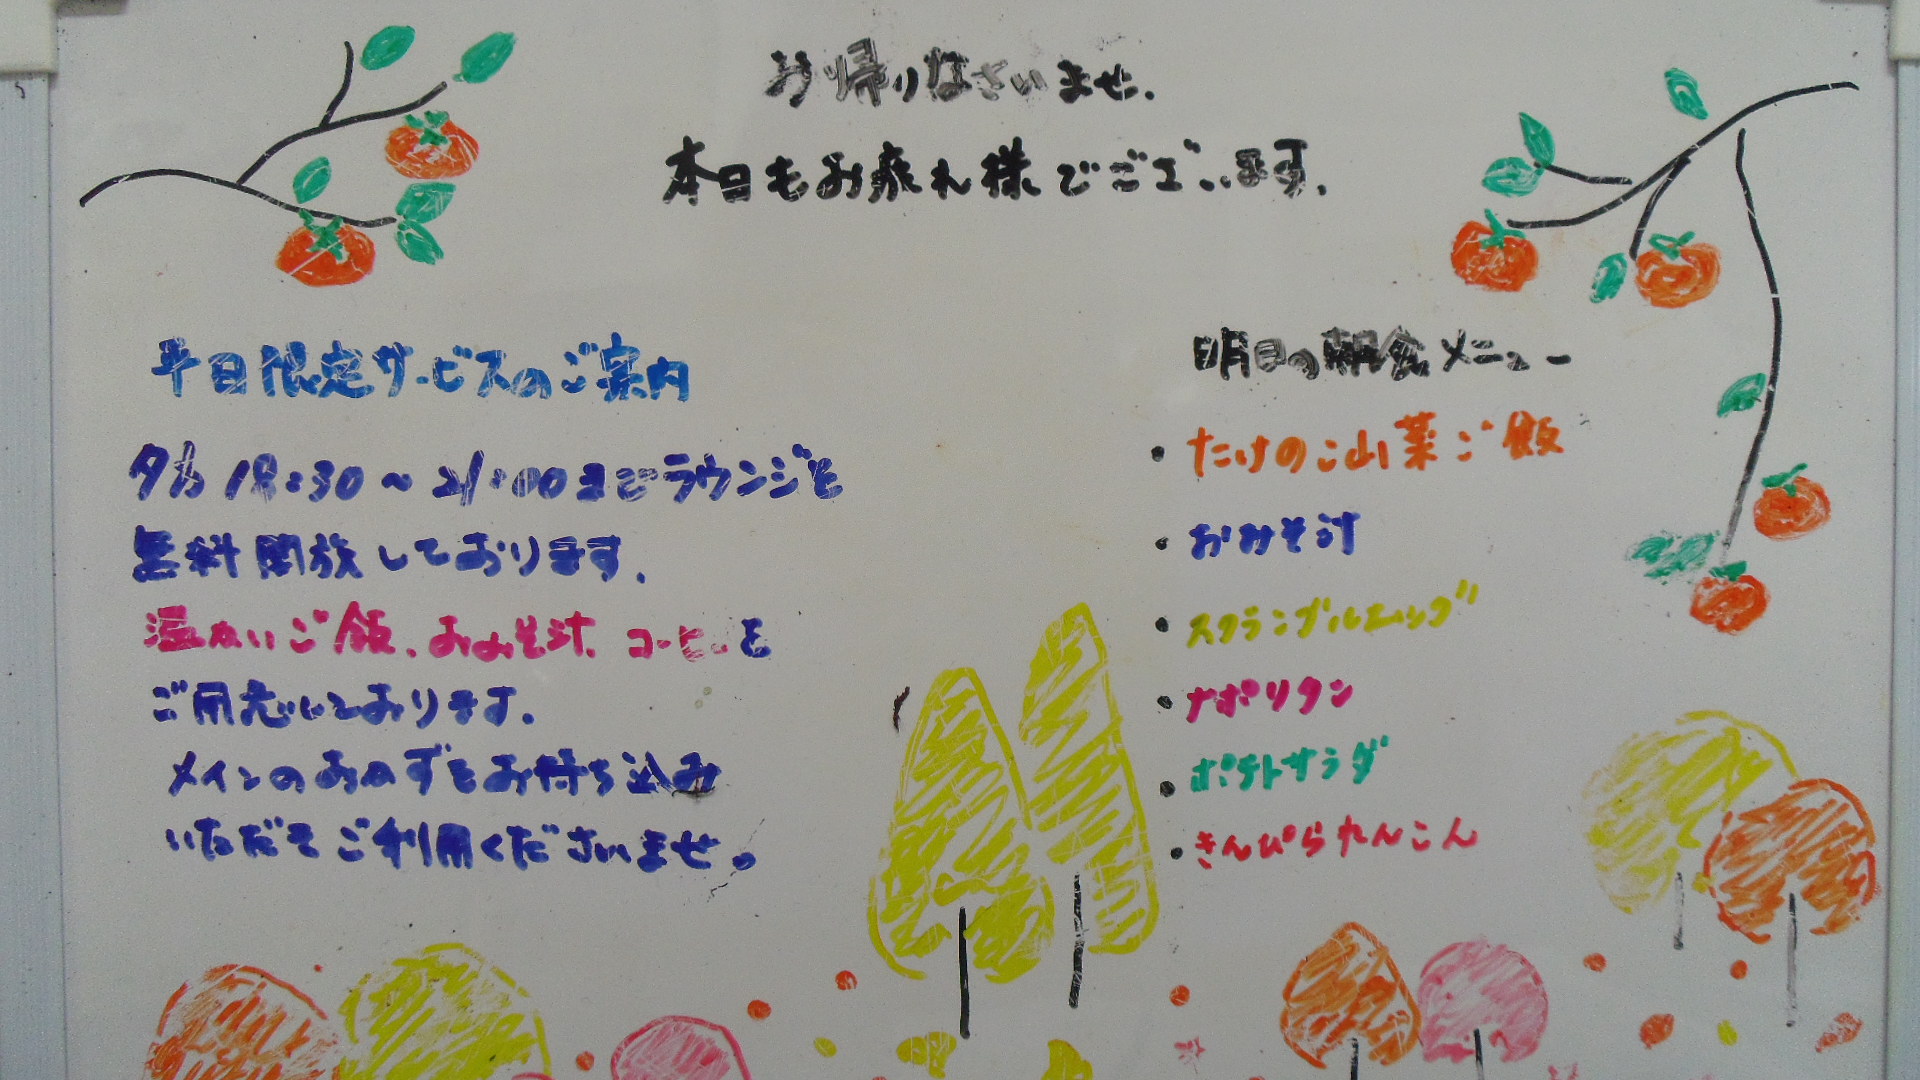 お帰りなさいませ.
本日もお疲れ様でございます.
平日限定サービスのご案内
夕方 18:30～21:00までラウンジを
無料開放しております.
温かいご飯、おみそ汁、コーヒーを
ご用意しております.
メインのおかずをお持ち込み
いただきご利用くださいませ。
明日の朝食メニュー
・たけのこ山菜ご飯
・おみそ汁
・スクランブルエッグ
・ナポリタン
・ポテトサラダ
・きんぴられんこん